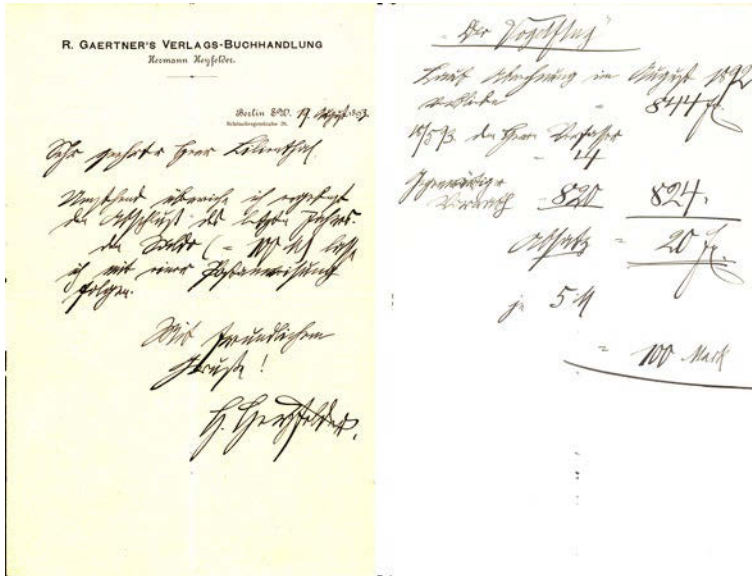 R. GAERTNER'S VERLAGS-BUCHHANDLUNG
Hermann Heyfelder.
Berlin SW. 19. August 1893.
Schönebergerstraße 26.
Sehr geehrter Herr Lilienthal
Umstehend überreiche ich ergebenst
den Abschluß des letzten Jahres.
den Saldo (= 100 M) lasse
ich mit einer Postanweisung
folgen.
Mit freundlichem
Gruße!
H. Heyfelder.
„Der Vogelflug"
Laut Abrechnung im August 1892
844
den Herrn Verfasser
4
Gegenwärtiger
Vorrath 820 824.
Absatz = 20
je 5 M
= 100 Mark